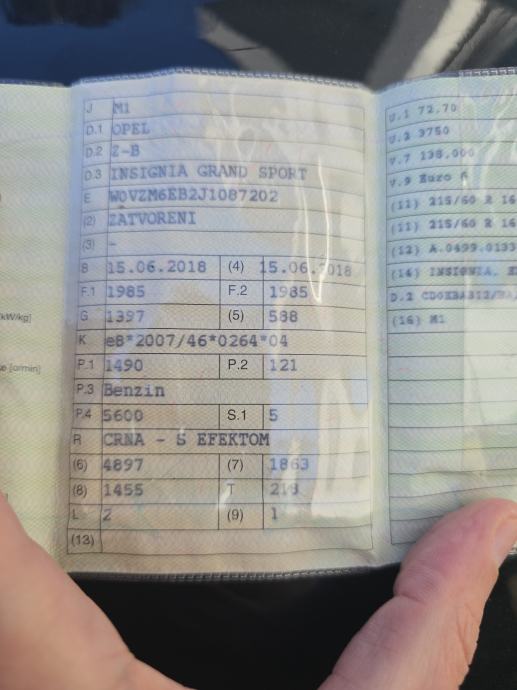 J M1
D.1 OPEL
D.2 Z-B
D.3 INSIGNIA GRAND SPORT
E W0VZM6EB2J1087202
(2) ZATVORENI
(3) -
B 15.06.2018 (4) 15.06.2018
F.1 1985 F.2 1985
G 1397 (5) 588
K e8*2007/46*0264*04
P.1 1490 P.2 121
P.3 Benzin
P.4 5600 S.1 5
R CRNA - S EFEKTOM
(6) 4897 (7) 1863
(8) 1455 T
L 2 (9) 1
(13)
U.1 72,70
3750
V.7 138,000
V.9 Euro 6
(11) 215/60 R 16
(11) 215/60 R 16
(12) A.0499.0133
(14) INSIGNIA,
D.2
(16) M1
kW/kg]
[o/min]